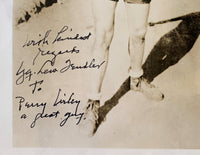 with kindest
regards
Lew Tendler
To
Perry
a great guy